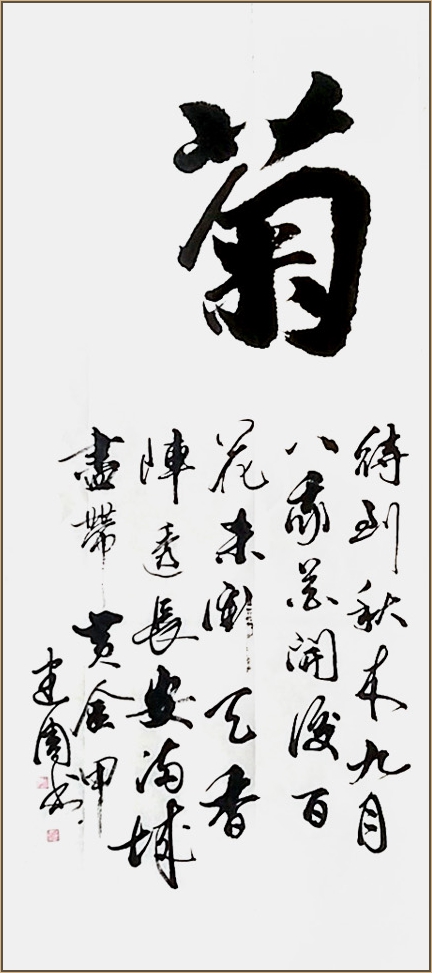 菊
待到秋来九月
八我花開後百
花杀衝天香
陣透長安满城
盡帶黄金甲
建國书